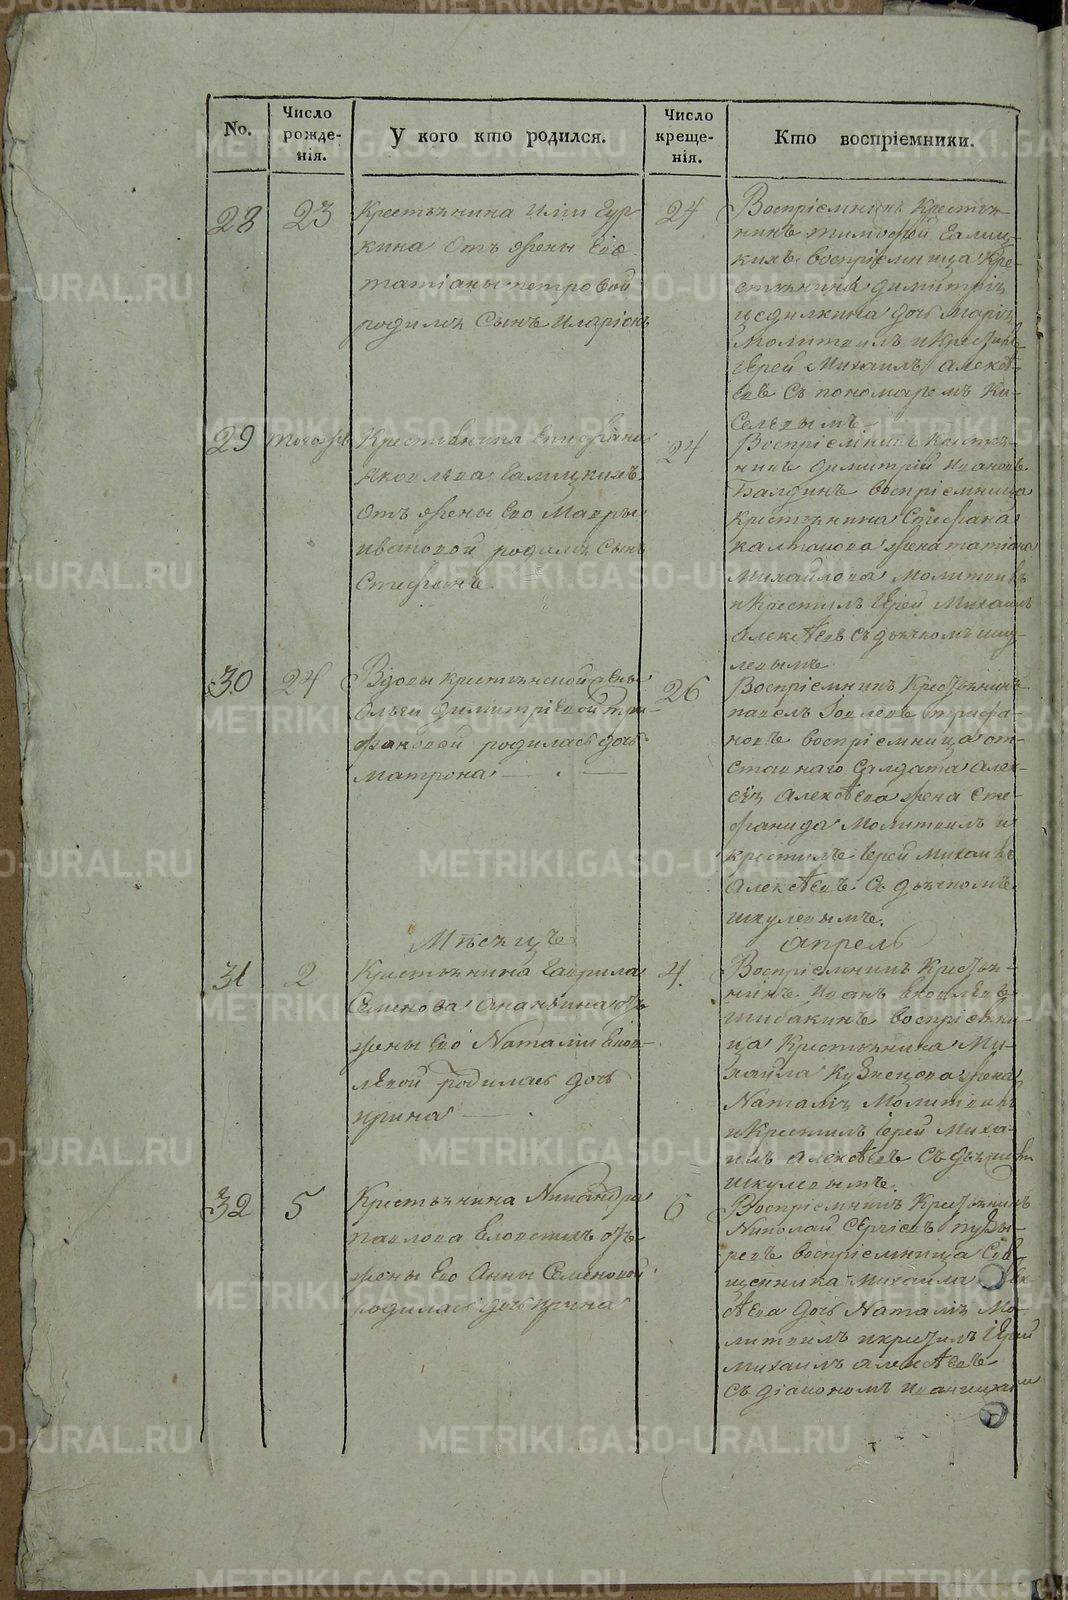 No.
Число рожде-нія.
У кого кто родился.
Число креще-нія.
Кто воспріемники.
28
23
Крестьянина Иліи Гур
кина Отъ жены Его
татіаны петровой
родился Сынъ Иларіонъ
24
Воспріемникъ Крестья
нинъ тимофей Галиц-
кихъ воспріемница Кре-
стьянина димитрія
цедилкина дочь Марія
Молитвилъ и Крестилъ
Іерей Михаилъ Алексѣ-
евъ Съ пономаремъ Ки-
селевымъ
29
Тогожъ
Крестьянина
Яковлева Галицкихъ
Отъ жены Его Мавры
ивановой родился Сынъ
Стефанъ.
24
Воспріемникъ Крестья-
нинъ димитрій Ивановъ
Балдинъ воспріемница
Крестьянина Стефана
жена татіана
Михайлова Молитвилъ
и Крестилъ Іерей Михаилъ
Алексѣевъ Съ дьячкомъ шку-
левымъ
30
24
Вдовы крестьянской
Ольги димитріевой три-
фановой родилась дочь
Матрона
26
Воспріемникъ Крестьянинъ
павелъ Іовлевъ трифа-
новъ воспріемница от-
ставнаго Салдата Алек-
сѣя Алексѣева жена Сте-
фанида Молитвилъ и
крестилъ Іерей Михаилъ
Алексѣевъ Съ дьячкомъ
шкулевымъ.
Мѣсяцъ
апрель
31
2
Крестьянина Гаврила
Семенова Ананьина отъ
жены Его Наталіи Яков-
левой родилась дочь
ирина
4
Воспріемникъ Крестья-
нинъ Иванъ Яковлевъ
Шибакинъ воспріемни-
ца Крестьянина Ми-
хайла Кузнецова жена
Наталія Молитвилъ
и Крестилъ Іерей Миха-
илъ Алексѣевъ Съ дьячкомъ
шкулевымъ.
32
5
Крестьянина Никандра
павлова Еловскихъ отъ
жены Его Анны Семеновой
родилась дочь ирина
6
Воспріемникъ Крестьянинъ
Николай Сергіевъ пузы-
ревъ воспріемница Свя-
щенника Михаила Алек
сѣева дочь Наталія Мо-
литвилъ и крестилъ Іерей
Михаилъ Алексѣевъ
Съ діакономъ
METRIKI.GASO-URAL.RU